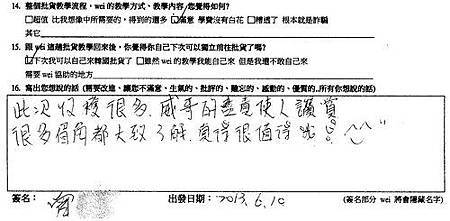 14. 整個批貨教學流程，wei 的教學方式、教學內容/您覺得如何?
□超值 比我想像中所需要的，得到的還多 ☑滿意 學費沒有白花 □糟透了 根本就是詐騙
其它
15. 跟 wei 這趟批貨教學回來後，你覺得你自己下次可以獨立前往批貨了嗎?
☑下次我可以自己來韓國批貨了 □雖然 wei 的教學我能自己來 但是我還不敢自己來
需要 wei 協助的地方
16. 寫出您想說的話 (需要改進、讓您不滿意、生氣的、批評的、難忘的、感動的、優質的...所有你想說的話)
此次收穫很多，威哥耐盡責使人讚賞
很多眉角都大致了解，覺得很值得 ^^"
簽名：
出發日期：2013.6.10
(簽名部分 wei 將會隱藏名字)